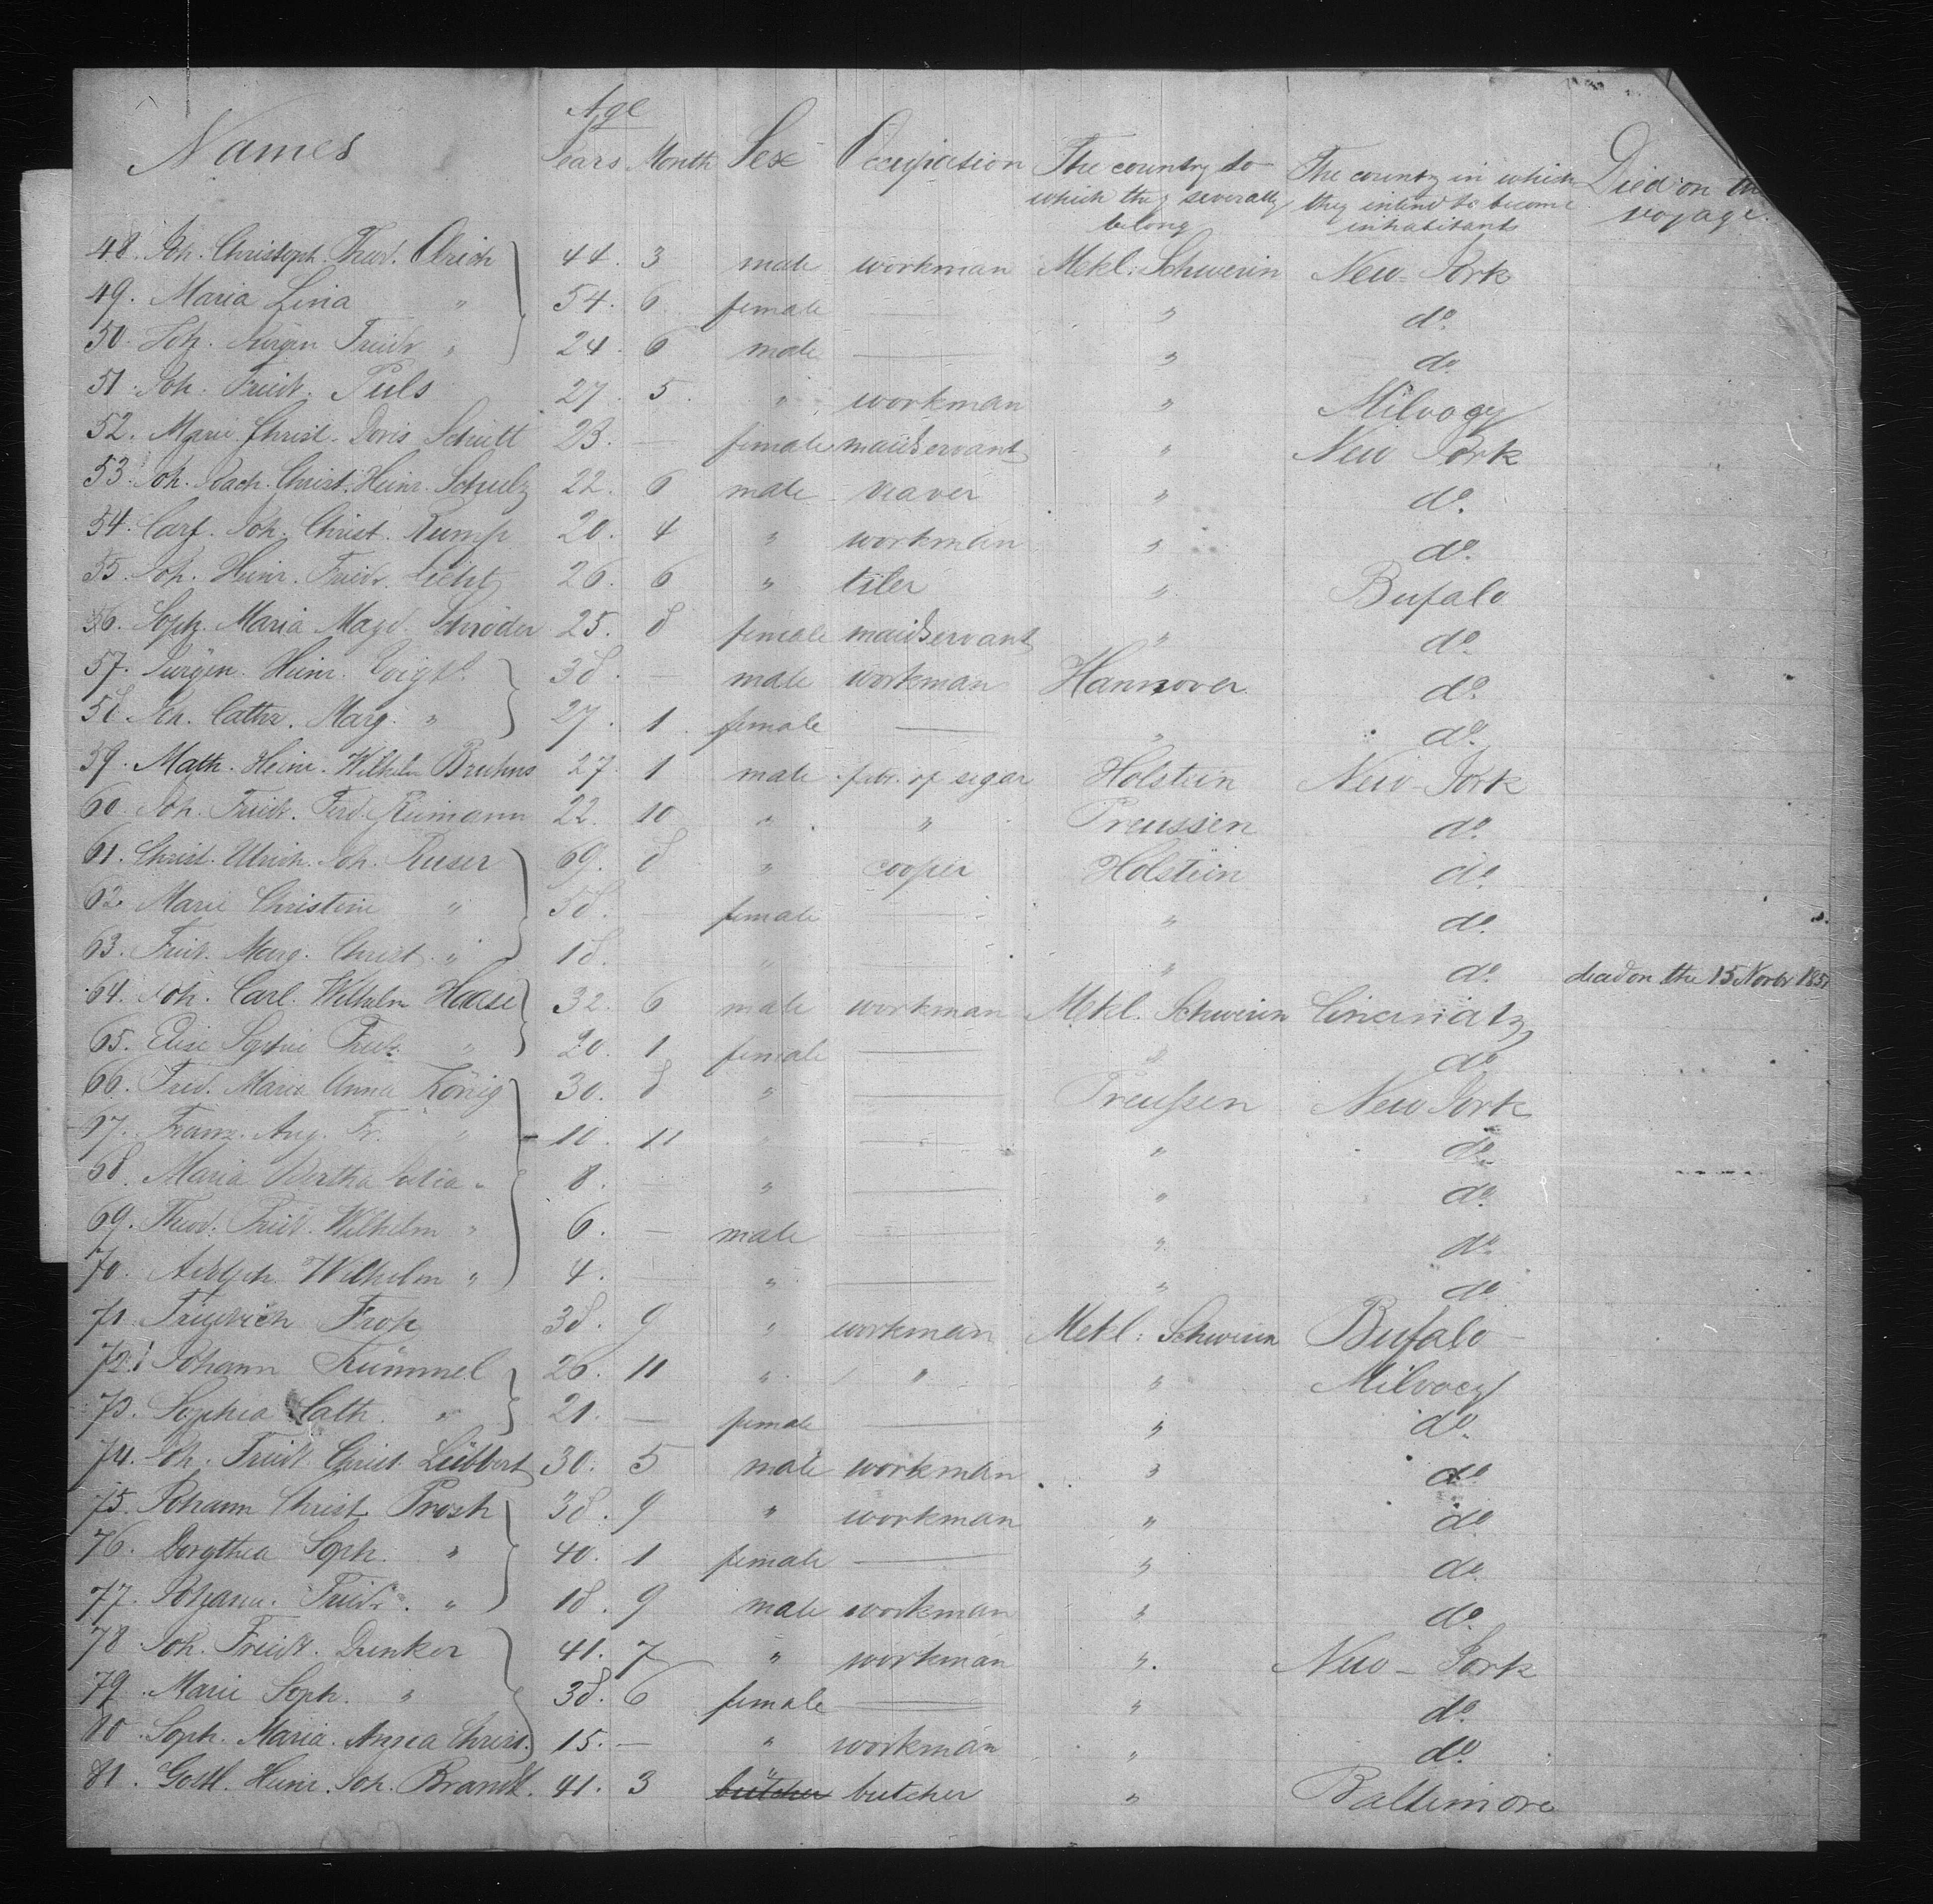 Names Age Years Month Sex Occupation The country to which they severally belong The country in which they intend to become inhabitants Died on the voyage.
48. Joh. Christoph. Theod. Ulrich 44. 3 male workman Mekl: Schwerin New-York
49. Maria Lina " 54. 6 female — " do.
50. Joh. Jürgen Friedr. " 24. 6 male — " do.
51. Joh. Friedr. Puls 27. 5. " workman " Milvocy
52. Marie Christ. Doris Schütt 23. — female maidservant " New York
53. Joh. Joach. Christ. Heinr. Schulz 22. 6 male veaver " do.
54. Carl. Joh. Christ. Rump 20. 4 " workman " do.
55. Joh. Heinr. Friedr. 26. 6 " tiler " Bufalo
56. Soph. Maria Magd. Schröder 25. 8 female maidservant " do.
57. Jürgen. Heinr. Voigt. 38. — male workman Hannover do.
58. Joh. Cathr. Marg. " 27. 1. female — " do.
59. Math. Heinr. Wilhelm Bruhns 27. 1 male fabr. of segar Holstein New-York
60. Joh. Friedr. Ferd. Reimann 22. 10 " " Preussen do.
61. Christ. Ulrich. Joh. Rueser 69. 8 " cooper Holstein do.
62. Marie Christine " 58. — female — " do.
63. Fried. Marg. Christ. " 18. — " — " do. dead on the 15 Novbr 185
64. Joh. Carl. Wilhelm Haase 32. 6 male workman Mekl. Schwerin Cincinatz
65. Elise Sophie Friedr. " 20. 1 female — " do.
66. Fried. Maria Anna König 30. 8 " — Preussen New York
67. Franz. Aug. Fr. " 10. 11 " — " do.
68. Maria Bertha " 8. — " — " do.
69. Theod. Friedr. Wilhelm " 6. — male — " do.
70. Adolph Wilhelm " 4. " — " do.
71. Friedrich Froh 38. 9 " workman Mekl: Schwerin Bufalo
72. Johann Kümmel 26. 11 " " " Milvocy
73. Sophia Cath. " 21. — female — " do.
74. Joh. Friedr. Christ. Lübbert 30. 5 male workman " do.
75. Johann Christ. Prosch 38. 9 " workman " do.
76. Dorothea Soph. " 40. 1 female — " do.
77. Johann. Friedr. " 18. 9 male workman " do.
78 Joh. Friedr. Dunker 41. 7 " workman " New-York
79. Marie Soph. " 38. 6 female — " do.
80. Soph. Maria. Anna Christ. 15. — " workman " do.
81. Gottl. Heinr. Joh. Brandt. 41. 3 butcher " butcher " Baltimore